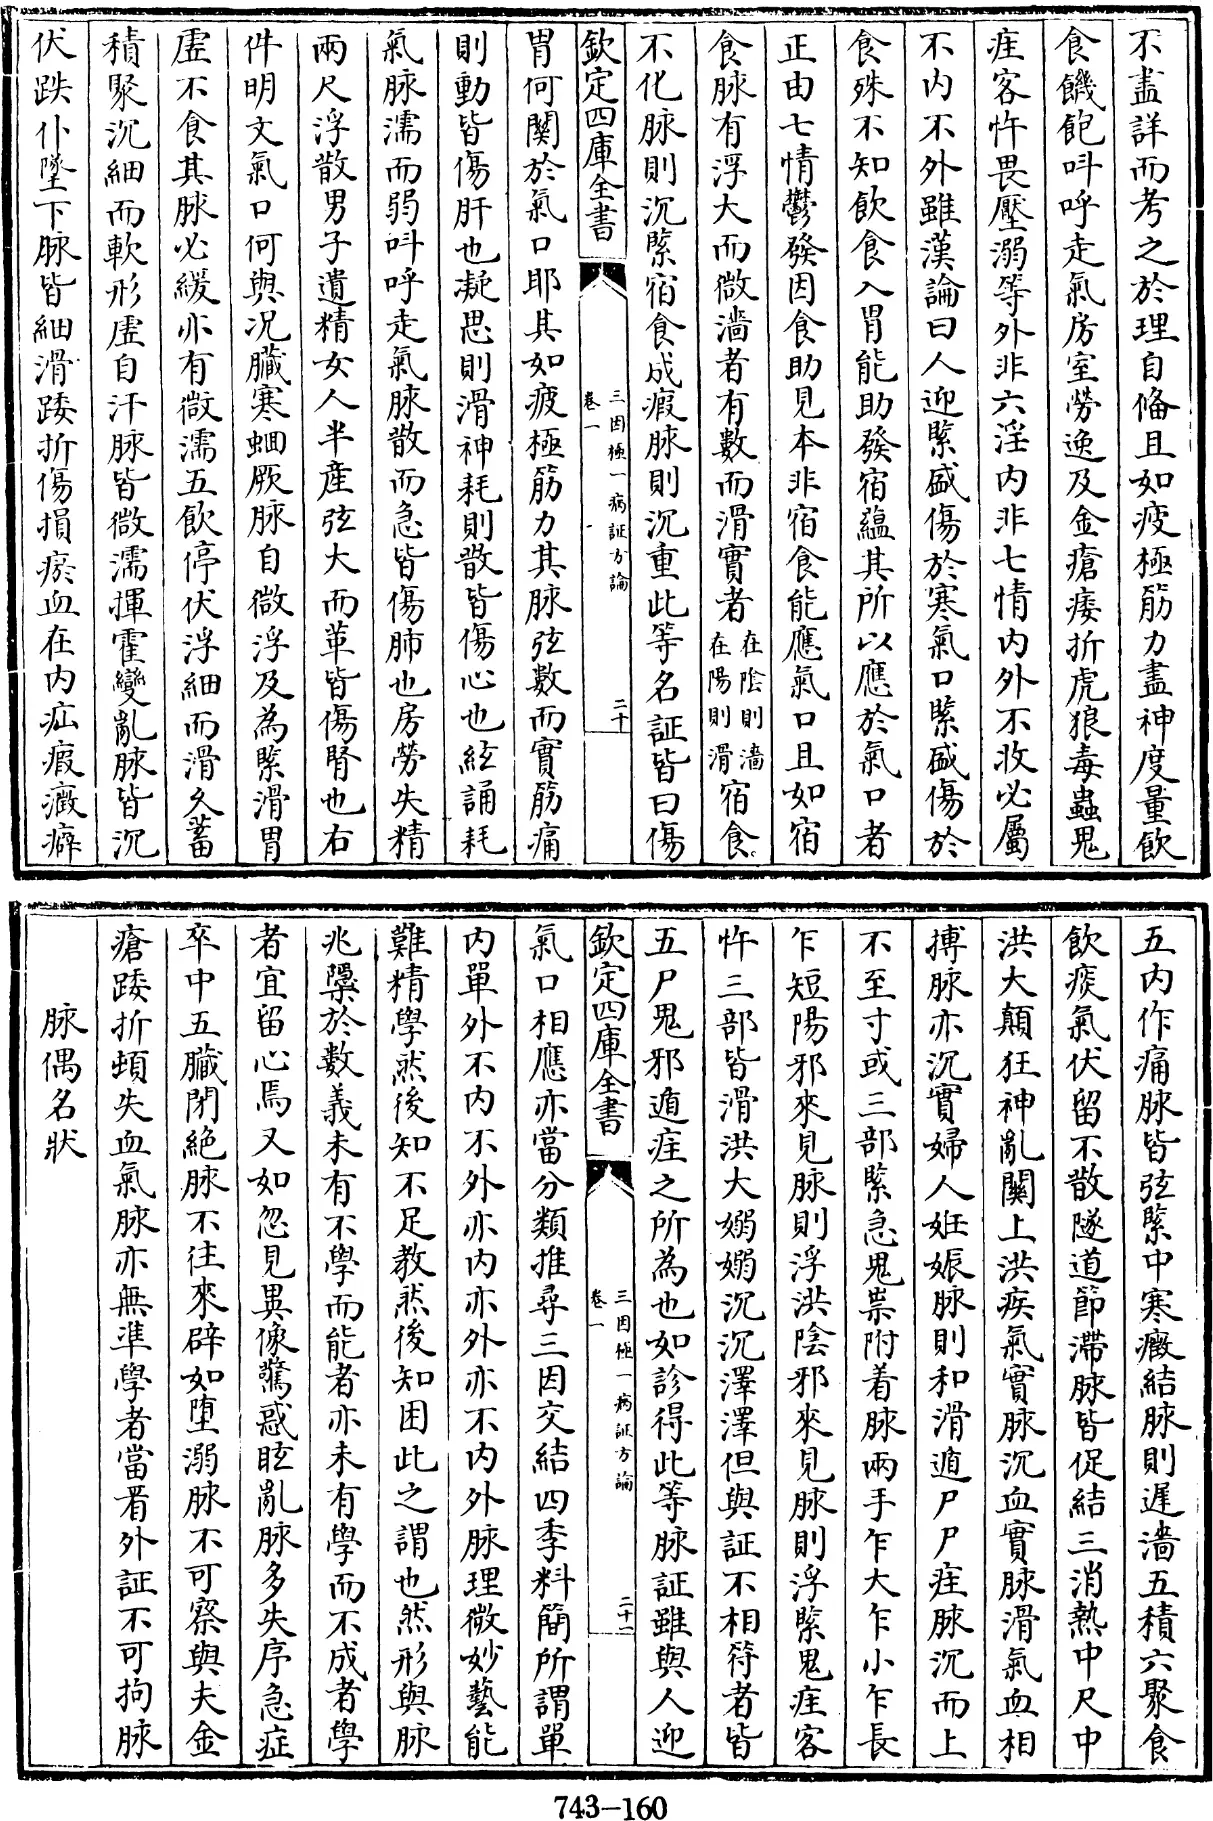 不盡詳而考之於理自俻且如疲極筋力盡神度量飲
食饑飽呌呼走氣房室勞逸及金瘡痿折虎狼毒蟲鬼
疰客忤畏壓溺等外非六淫内非七情内外不收必屬
不内不外雖漢論曰人迎緊盛傷於寒氣口緊盛傷於
食殊不知飲食入胃能助發宿蘊其所以應於氣口者
正由七情鬱發因食助見本非宿食能應氣口且如宿
食脉有浮大而微濇者有數而滑實者在隂則濇在陽則滑宿食
不化脉則沉緊宿食成瘕脉則沉重此等名証皆曰傷
欽定四庫全書
三因極一病証方論
卷一
二十
胃何關於氣口耶其如疲極筋力其脉弦數而實筋痛
則動皆傷肝也凝思則滑神耗則散皆傷心也絃誦耗
氣脉濡而弱呌呼走氣脉散而急皆傷肺也房勞失精
兩尺浮散男子遺精女人半産弦大而革皆傷腎也右
件明文氣口何與況臟寒蛔厥脉自微浮及為緊滑胃
虚不食其脉必緩亦有微濡五飲停伏浮細而滑久蓄
積聚沉細而軟形虚自汗脉皆微濡揮霍變亂脉皆沉
伏跌仆墜下脉皆細滑踒折傷損瘀血在内疝瘕癥癖
五内作痛脉皆弦緊中寒癥結脉則遲濇五積六聚食
飲痰氣伏留不散隧道節滯脉皆促結三消熱中尺中
洪大顛狂神亂關上洪疾氣實脉沉血實脉滑氣血相
搏脉亦沉實婦人姙娠脉則和滑遁尸尸疰脉沉而上
不至寸或三部緊急鬼祟附着脉兩手乍大乍小乍長
乍短陽邪來見脉則浮洪陰邪來見脉則浮緊鬼疰客
忤三部皆滑洪大嫋嫋沉沉澤澤但與証不相符者皆
五尸鬼邪遁疰之所為也如診得此等脉証雖與人迎
欽定四庫全書
三因極一病証方論
卷一
二十一
氣口相應亦當分類推尋三因交結四季料簡所謂單
内單外不内不外亦内亦外亦不内外脉理微妙藝能
難精學然後知不足教然後知困此之謂也然形與脉
兆隳於數義未有不學而能者亦未有學而不成者學
者宜留心焉又如忽見異像驚惑眩亂脉多失序急症
卒中五臟閉絶脉不往來辟如堕溺脉不可察與夫金
瘡踒折頓失血氣脉亦無準學者當看外証不可拘脉
脉偶名狀
743-160